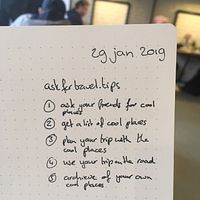 29 jan 2019
askfortravel.tips
① ask your friends for cool
places
② get a list of cool places
③ plan your trip with the
cool places
④ use your trip on the road
⑤ archive of your own
cool places